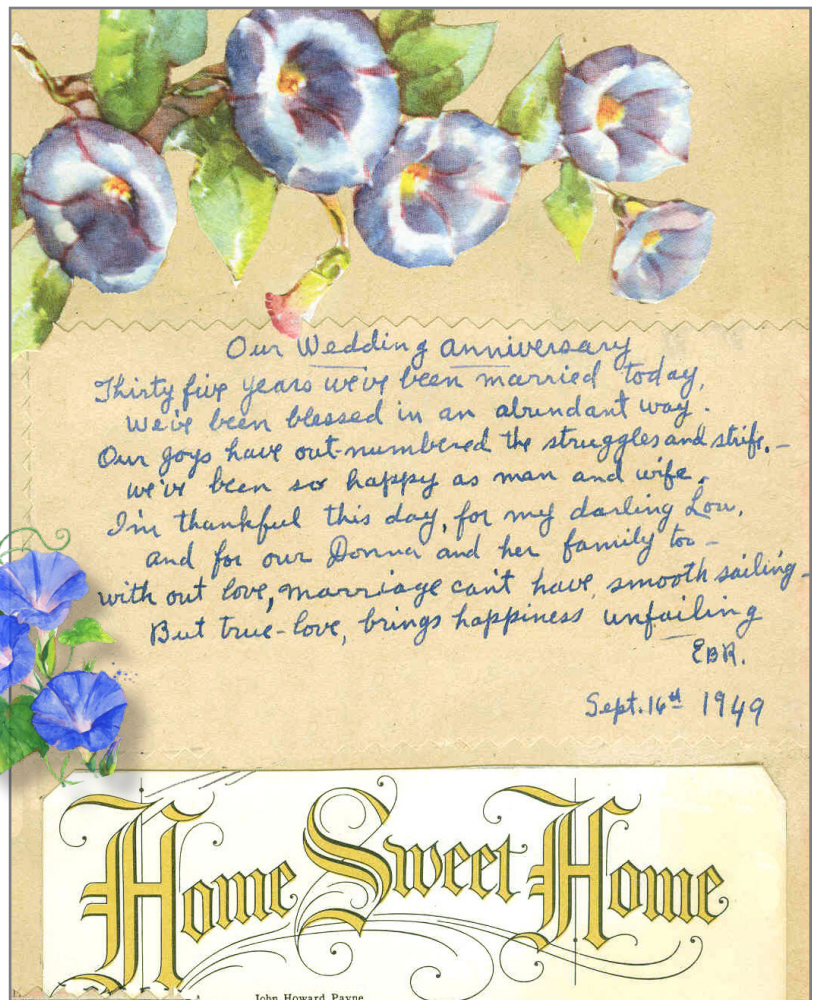 Our Wedding Anniversary
Thirty five years we've been married today,
We've been blessed in an abundant way.
Our joys have out-numbered the struggles and strife,-
we've been so happy as man and wife.
I'm thankful this day, for my darling Lou,
and for our Donna and her family too -
with out love, marriage can't have smooth sailing -
But true-love, brings happiness unfailing
EBR.
Sept. 16th 1949
Home Sweet Home
John Howard Payne